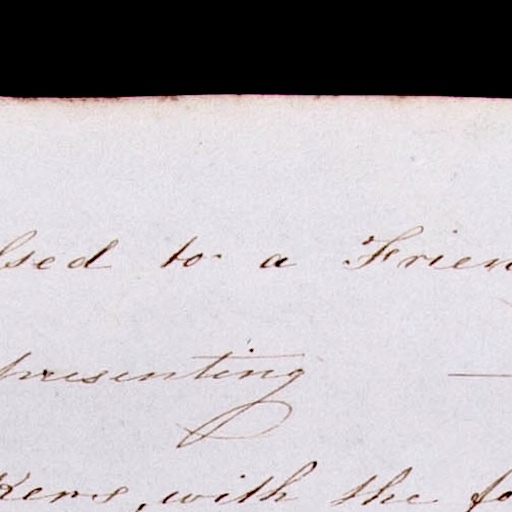 sed to a Frien
presenting —
kers, with the fo